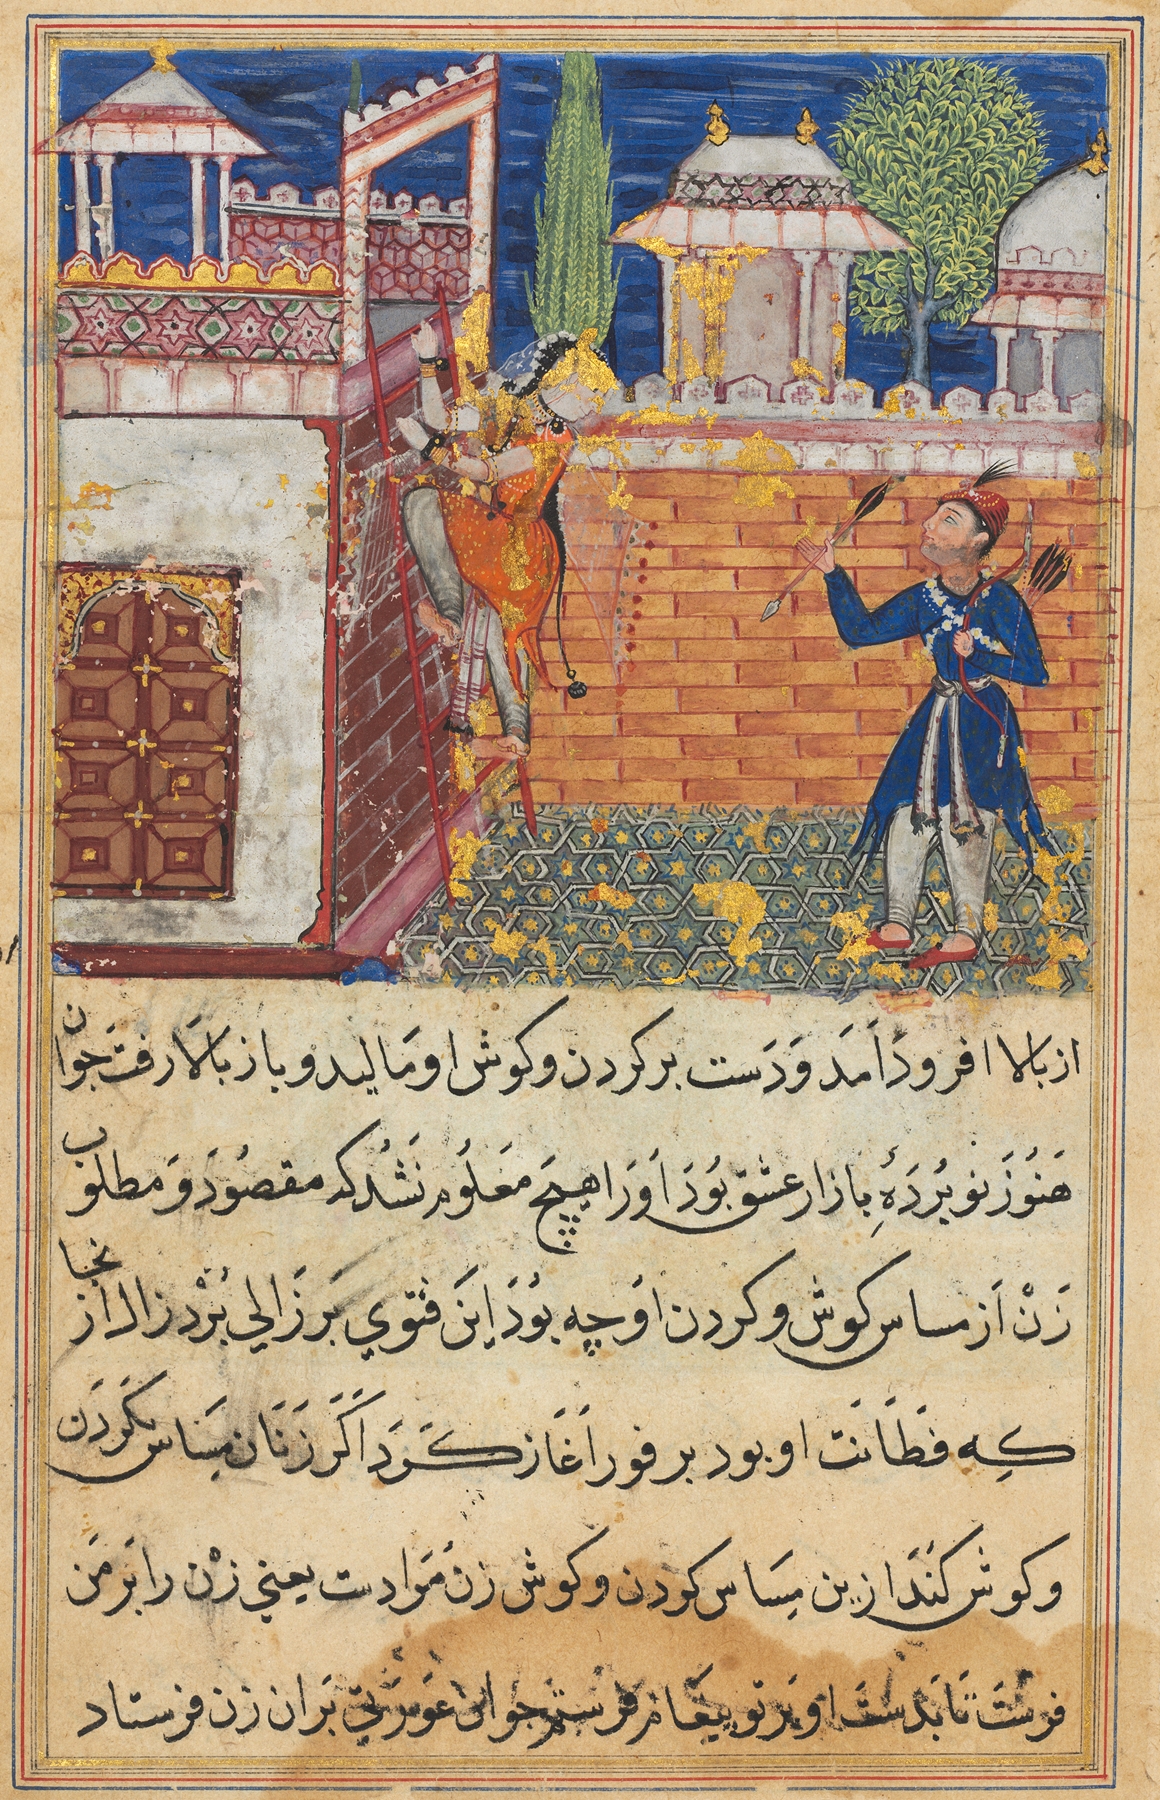 از بالا افرود اَمَد وَ دَست بر کردن و کوش او مَالید و باز بالا رفت جوان
هَنُوزَ نو بُرَدَهٔ بازار عشق بُوَد اَوَرَا هیچ مَعلُوم نَشُد که مقصُوَد وَ مطلوب
زَنْ اَز مساس کوش و کردن اَو چه بُوَد اِین فتوي بَر زَالي بُرْد زال از انجا
که فَطَانَت او بود بر فور اَغَاز کَرَد اَکَر زَنَان مِسَاس بکَردَن
و کوش کُنَند ازین مِسَاس کردن و کوش زن مُرَادست یعني زنْ را بَر مَن
فرستَ تَا بَدستَ او بَر تو پیغام فرستم جوان عَورَتي بَران زن فرستاد